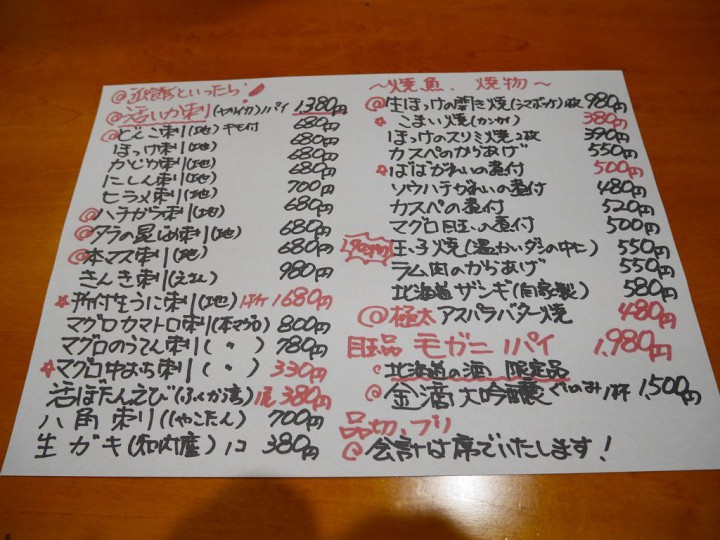 ◎函館といったら!
◎活いか刺(ヤリイカ)1パイ 1,380円
◎どんこ刺(地)キモ付 680円
ほっけ刺(地) 680円
かじか刺(地) 680円
にしん刺(地) 680円
ヒラメ刺(地) 700円
◎ハチがら刺(地) 680円
◎タラの昆〆刺(地) 680円
◎本マス刺(地) 680円
きんき刺(えさん) 980円
☆殻付生うに刺(地) 1ケ 1680円
マグロカマトロ刺(本マグロ) 800円
マグロのうてん刺(〃) 780円
☆マグロ中おち刺(〃) 330円
活ぼたんえび(ふんか湾) 1尾 380円
八角刺(しゃこたん) 700円
生ガキ(知内産) 1コ 380円
～焼魚、焼物～
◎生ほっけの開き焼(シマホッケ)1枚 980円
☆こまい焼(カンカイ) 380円
ほっけのスリミ焼2枚 390円
カスペのからあげ 550円
☆ばばがれいの煮付 500円
ソウハチがれいの煮付 480円
カスペの煮付 520円
マグロ目玉の煮付 500円
玉子焼(温かいダシの中に) 550円
ラム肉のからあげ 550円
北海道ザンギ(自家製) 580円
◎極太アスパラバター焼 480円
目玉品 毛ガニ 1パイ 1,980円
◎北海道の酒 限定品
◎金滴大吟醸 1杯 1,500円
品切、ブリ
◎会計は席でいたします!